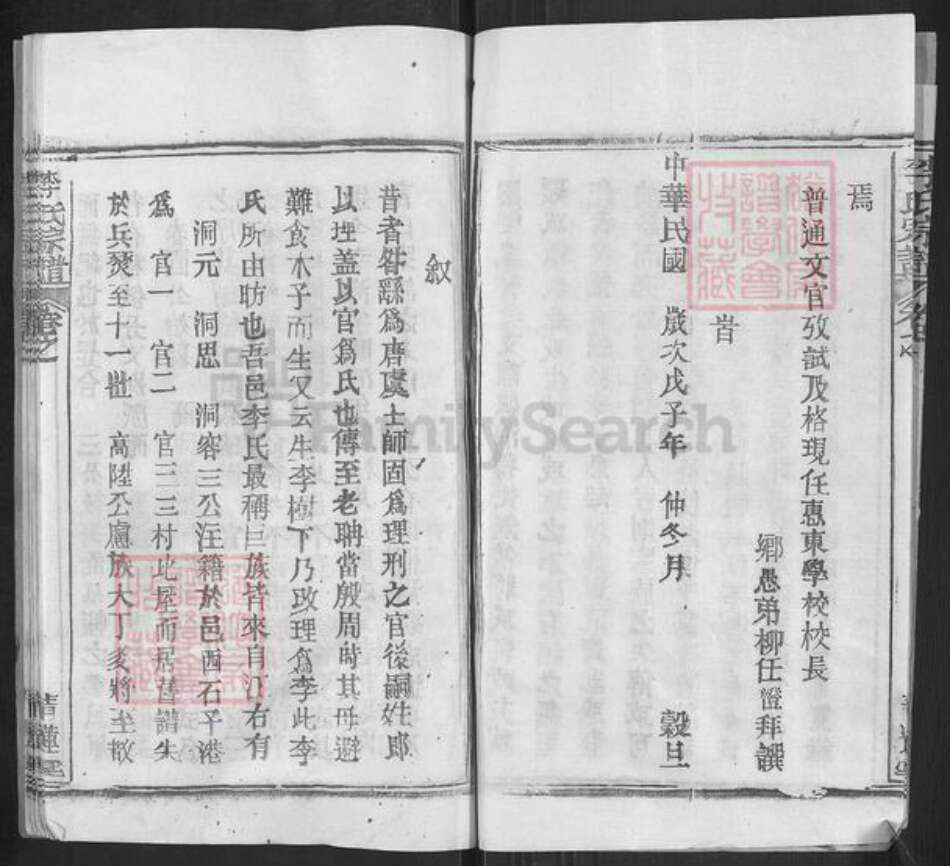 焉
普通文官攷試及格現任惠東學校校長
鄉愚弟柳任證拜譔
旹
中華民國 歲次戊子年 仲冬月 穀旦
叙
昔者咎繇為唐虞士師固為理刑之官後嗣姓郎
以理蓋以官為氏也傳至老聃當殷周時其母避
難食木子而生又云生李樹下乃攺理為李此李
氏所由昉也吾邑李氏最稱巨族皆來自江右有
洞元 洞思 洞容三公注籍於邑西石平港
為 官一 官二 官三三村比屋而居舊譜失
於兵燹至十一世 高陞公慮族大丁多將至散
李氏宗譜
卷之
青蓮堂
FamilySearch